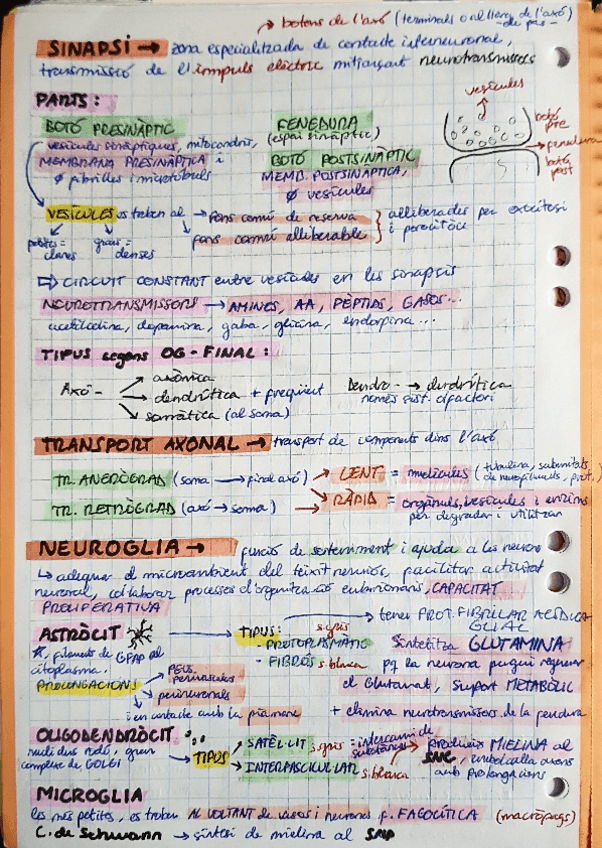 → botons de l'axó (terminals o al llarg de l'axó)
-de pas-
SINAPSI → zona especialitzada de contacte interneuronal,
transmissió de l'impuls elèctric mitjançant neurotransmissors
PARTS:
vesícules
BOTÓ PRESINÀPTIC
FENEDURA
(espai sinàptic)
botó pre
fenedura
botó post
vesícules sinàptiques, mitocondris,
MEMBRANA PRESINÀPTICA i
Ø fibrilles i microtúbuls
BOTÓ POSTSINÀPTIC
MEMB. POSTSINÀPTICA,
Ø vesícules
VESÍCULES es troben al → fons comú de reserva
fons comú alliberable
alliberades per exocitosi
i porocitòsi
petites = clares
grans = denses
⇨ CIRCUIT CONSTANT entre vesícules en les sinapsis
NEUROTRANSMISSORS → AMINES, AA, PÈPTIDS, GASOS...
acetilcolina, dopamina, gaba, glicina, endorfina...
TIPUS segons OG - FINAL:
Axó -
→ axònica
→ dendrítica + freqüent
→ somàtica (al soma)
Dendro - → dendrítica
només sist. olfactori
TRANSPORT AXONAL → transport de components dins l'axó
TR. ANERÒGRAD (soma → final axó)
→ LENT = molècules (tubulina, subunitats de neurofilaments, prot.)
TR. RETRÒGRAD (axó → soma)
→ RÀPID = orgànuls, vesícules i enzims
per degradar i utilitzar
NEUROGLIA → funció de sosteniment i ajuda a les neurones
↳ adequar el microambient del teixit nerviós, facilitar activitat
neuronal, col·laborar processos d'organització embrionaris, CAPACITAT
PROLIFERATIVA
→ tenen PROT. FIBRIL·LAR ACÍDICA
GLIAL
ASTRÒCIT
→ TIPUS: s.gris
- PROTOPLASMÀTIC
- FIBRÓS s.blanca
Sintetitza GLUTAMINA
pq la neurona pugui regenerar
el Glutamat, SUPORT METABÒLIC
filaments de GFAP al
citoplasma.
PROLONGACIONS
→ PEUS perivasculars
→ perineuronals
↓ i en contacte amb la piamare
+ elimina neurotransmissors de la fenedura
OLIGODENDRÒCIT
nucli dens rodó, gran
complexe de GOLGI
→ TIPUS
SATÈL·LIT s.gris = intercanvi de substàncies
INTERFASCICULAR s.blanca
→ produeix MIELINA al
SNC, embolcalla axons
amb prolongacions
MICROGLIA
les més petites, es troben AL VOLTANT de vasos i neurones f. FAGOCÍTICA (macròfags)
C. de Schwann → síntesi de mielina al SNP